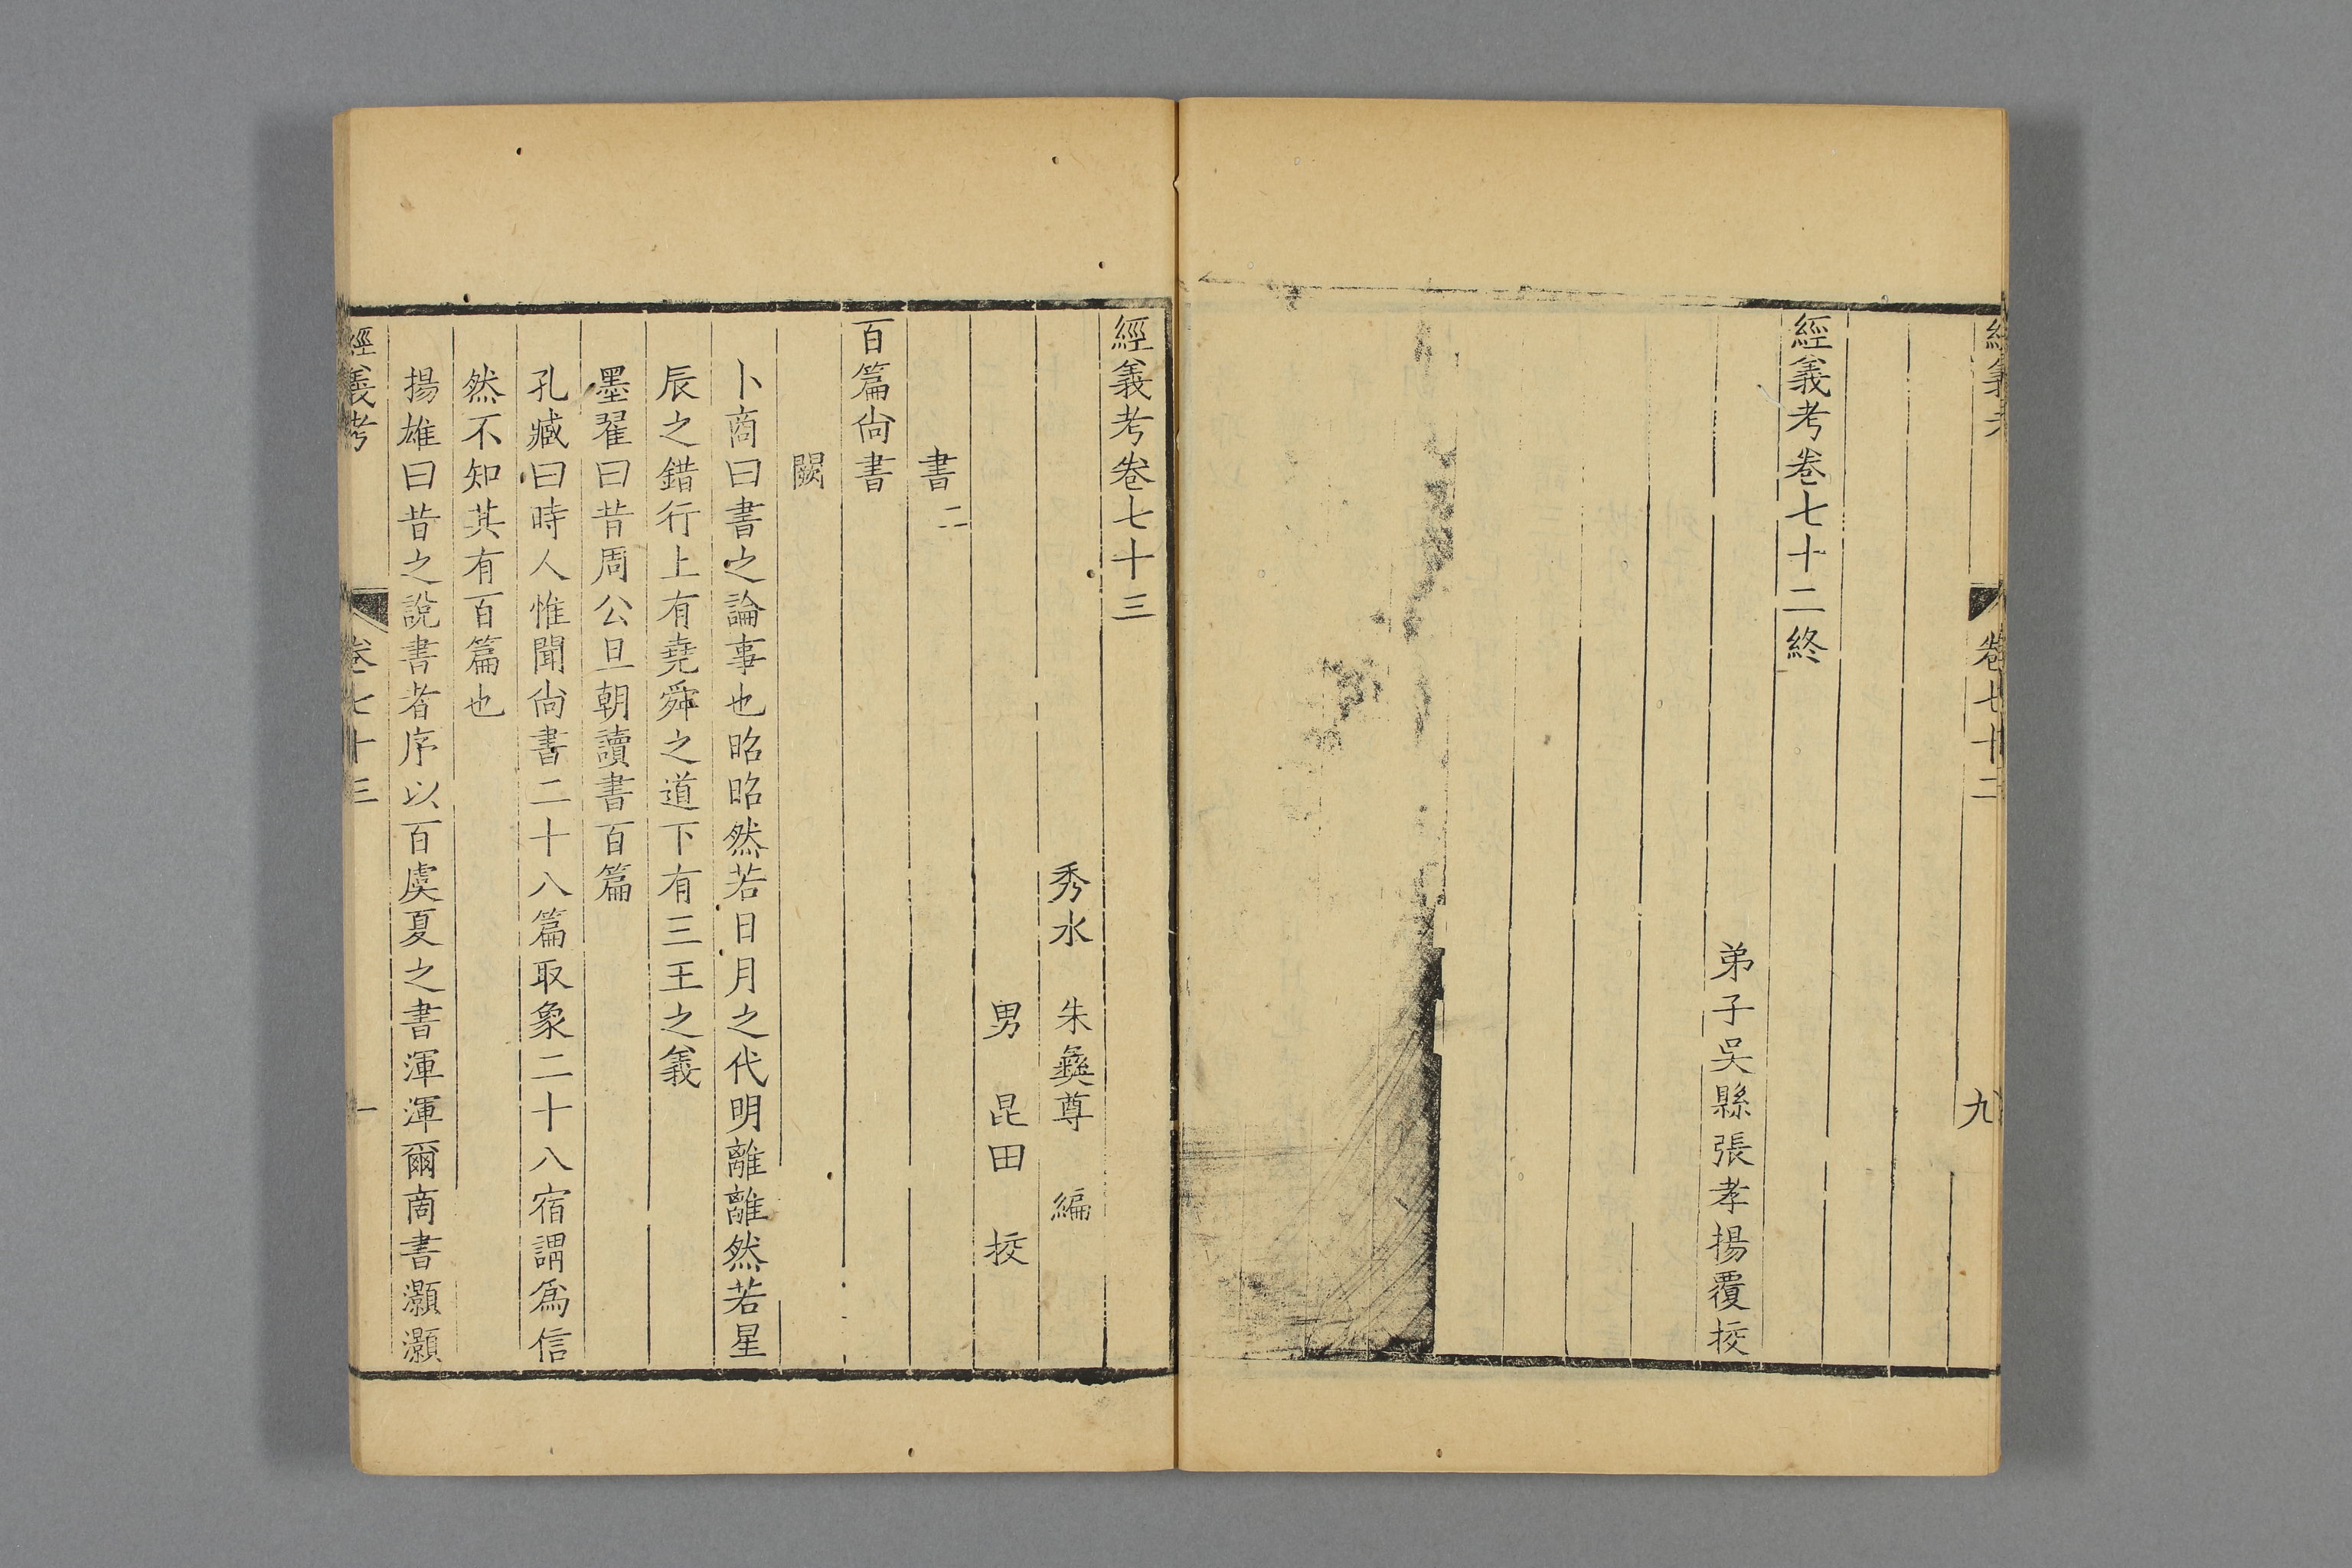 經義考
卷七十二
九
經義考卷七十二終
弟子吳縣張孝揚覆挍
經義考卷七十三
秀水　朱彝尊　編
男　昆田　挍
書二
百篇尙書
闕
卜商曰書之論事也昭昭然若日月之代明離離然若星
辰之錯行上有堯舜之道下有三王之義
墨翟曰昔周公旦朝讀書百篇
孔臧曰時人惟聞尙書二十八篇取象二十八宿謂爲信
然不知其有百篇也
揚雄曰昔之說書者序以百虞夏之書渾渾爾商書灝灝
經義考
卷七十三
一